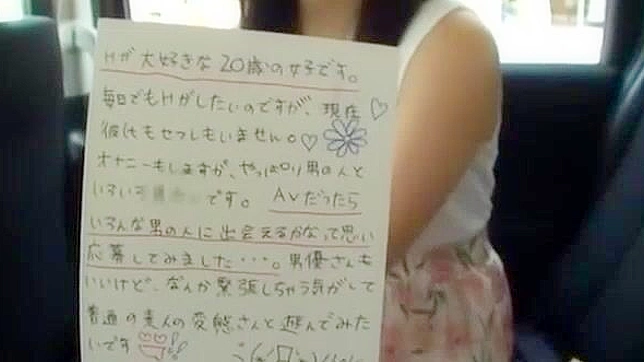 Hが大好きな20歳の女子です。
毎日でもHがしたいのですが、現在♡
彼氏もセフレもいません。♡
オナニーもしますが、やっぱり男の人と
いろいろです。 AVだったら
いろんな男の人に出会えるかなって思い
応募してみました・・・。男優さんも
いいけど、なんか緊張しちゃう気がして
普通の素人の変態さんと遊んでみた
いです